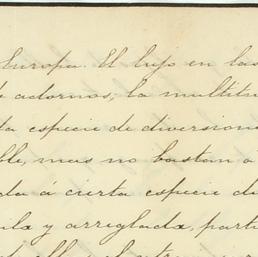 Europa. El lujo en las
adornos, la multitu
ta especie de diversione
ble, mas no bastan a
da á cierta especie de
ila y arreglada, parti